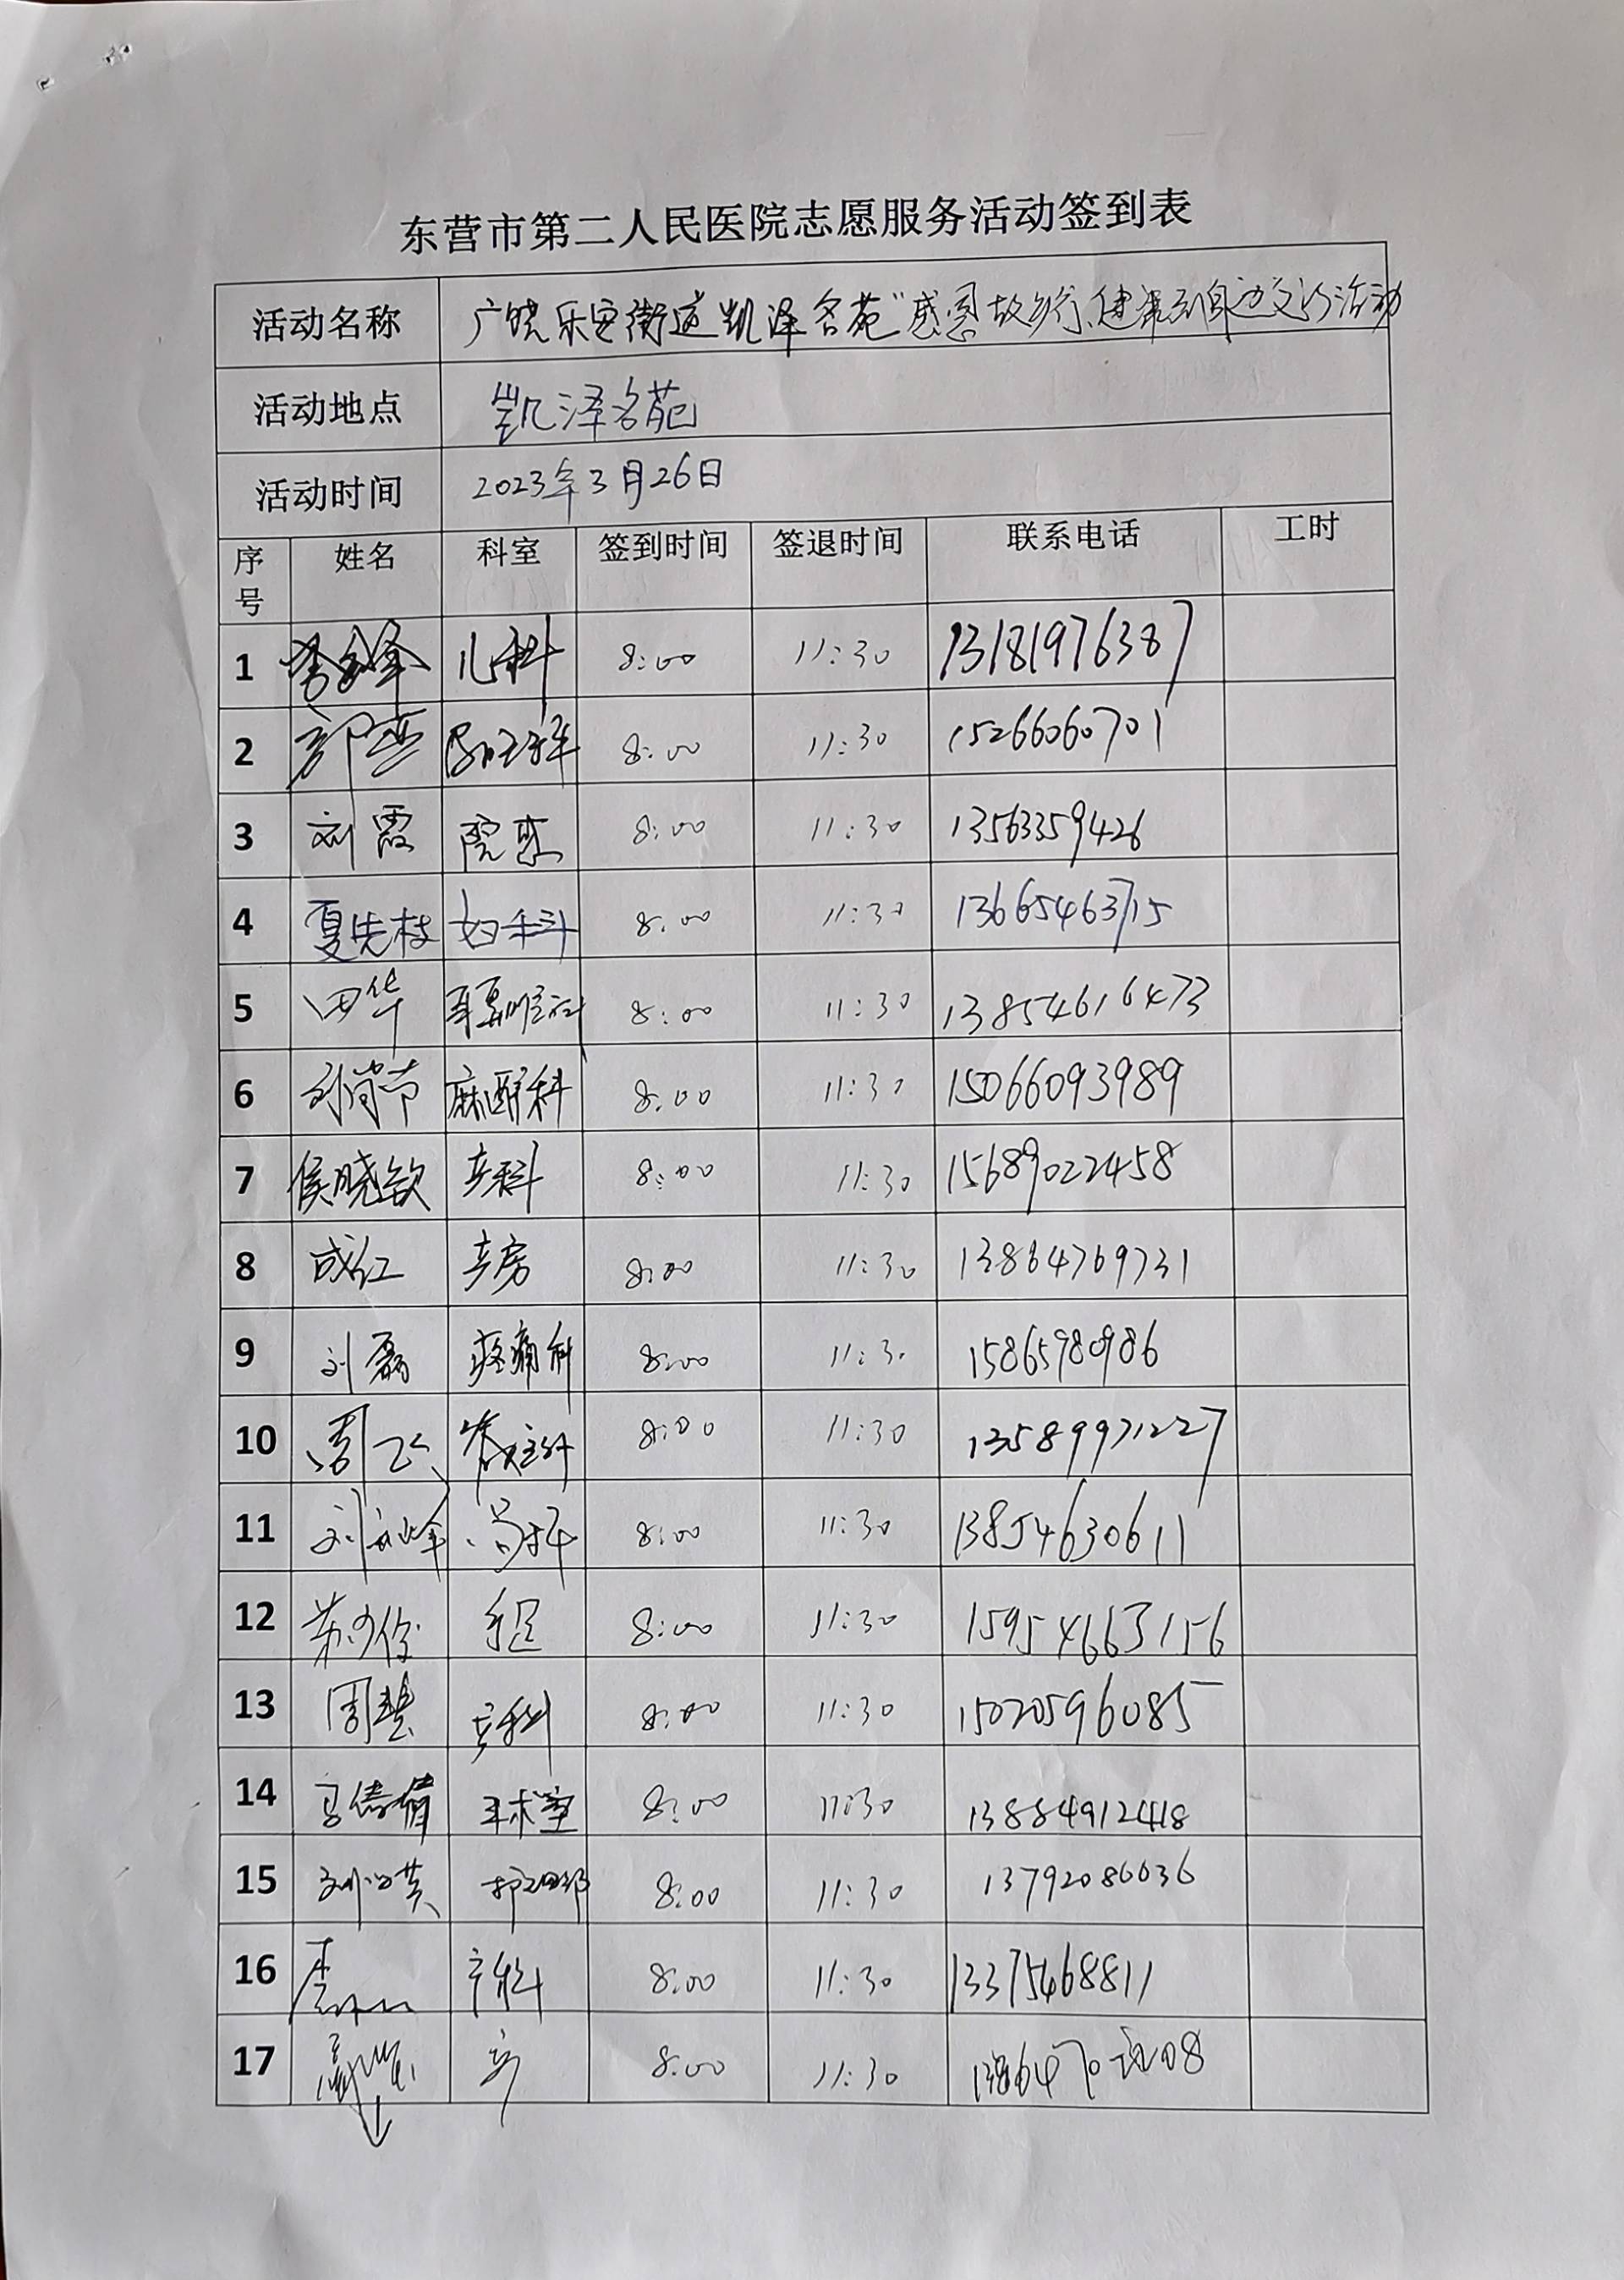 东营市第二人民医院志愿服务活动签到表
活动名称 广饶乐安街道凯泽名苑"感恩故乡行、健康到身边义诊活动
活动地点 凯泽名苑
活动时间 2023年3月26日
序号 姓名 科室 签到时间 签退时间 联系电话 工时
1 儿科 8:00 11:30 13181976387
2 郭 8:00 11:30 15266060701
3 刘霞 院感 8:00 11:30 13563359426
4 夏先枝 妇科 8:00 11:30 13665463715
5 田华 耳鼻喉科 8:00 11:30 13854616473
6 刘尚节 麻醉科 8:00 11:30 15066093989
7 侯晓钦 产科 8:00 11:30 15689022458
8 成红 产房 8:00 11:30 13864769731
9 刘磊 疼痛科 8:00 11:30 15865980986
10 周飞 脊柱外 8:00 11:30 13589971227
11 刘 8:00 11:30 13854630611
12 8:00 11:30 15954663156
13 周慧 产科 8:00 11:30 15020596085
14 马倩倩 手术室 8:00 11:30 13884912418
15 护理部 8:00 11:30 13792086036
16 产科 8:00 11:30 13375468811
17 8:00 11:30